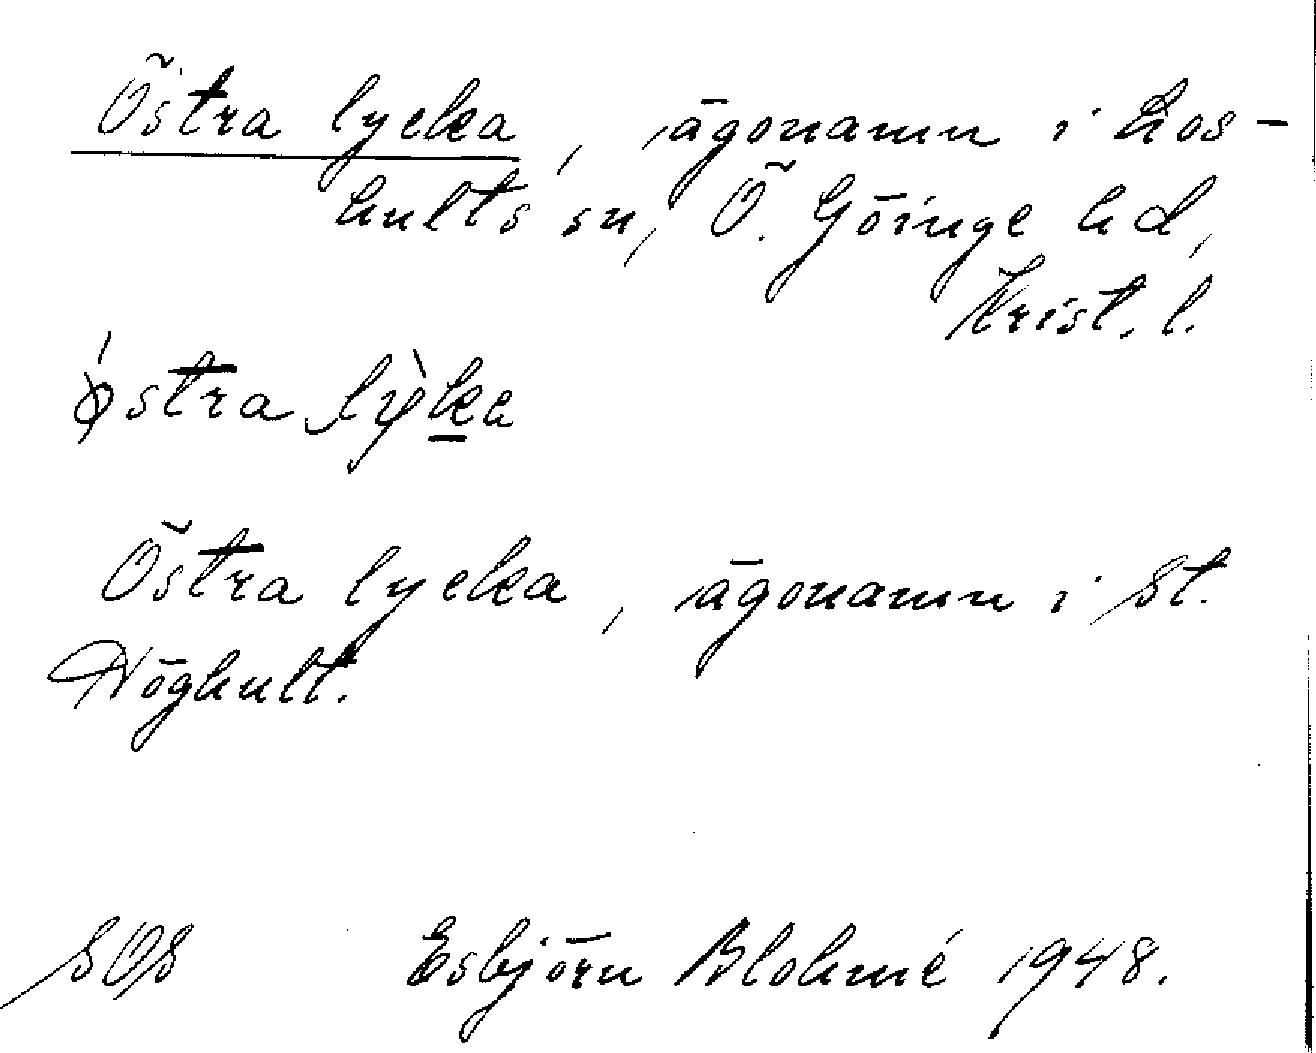 Östra lycka, ägonamn i Los-
hults sn, Ö. Göinge hd,
Krist. l.
ǿstra lỳka
Östra lycka, ägonamn i St.
Höghult.
SOS Esbjörn Blohmé 1948.